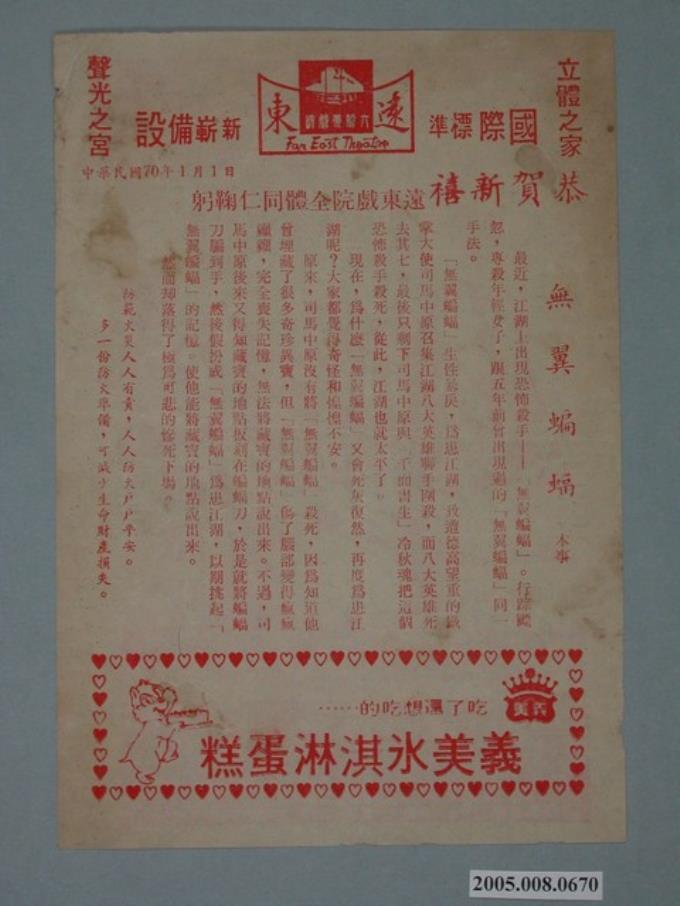 立體之家
聲光之宮
遠東
六輪豪戲院
Far East Theatre
國際標準
設備嶄新
中華民國70年1月1日
恭賀新禧
遠東戲院全體同仁鞠躬
無翼蝙蝠 本事
最近，江湖上出現恐怖殺手──「無翼蝙蝠」。行踪飄
忽，專殺年輕女子，跟五年前曾出現過的「無翼蝙蝠」同一
手法。
「無翼蝙蝠」生性暴戾，爲患江湖，致道德高望重的鐵
掌大使司馬中原召集江湖八大英雄聯手圍殺，而八大英雄死
去其七，最後只剩下司馬中原與「千面書生」冷秋魂把這個
恐怖殺手殺死，從此，江湖也就太平了。
現在，爲什麼「無翼蝙蝠」又會死灰復然，再度爲患江
湖呢？大家都覺得奇怪和惶惶不安。
原來，司馬中原沒有將「無翼蝙蝠」殺死，因爲知道他
曾埋藏了很多奇珍異寶，但「無翼蝙蝠」傷了腦部變得瘋瘋
癲癲，完全喪失記憶，無法將藏寶的地點說出來。不過，司
馬中原後來又得知藏寶的地點版刻在蝙蝠刀，於是就將蝙蝠
刀騙到手，然後假扮成「無翼蝙蝠」爲患江湖，以期挑起「
無翼蝙蝠」的記憶。使他能將藏寶的地點說出來。
然而却落得了極爲可悲的慘死下場。
防範火災人人有責，人人防火戶戶平安。
多一份防火準備，可減少生命財產損失。
義美
吃了還想吃的……
義美氷淇淋蛋糕
2005.008.0670